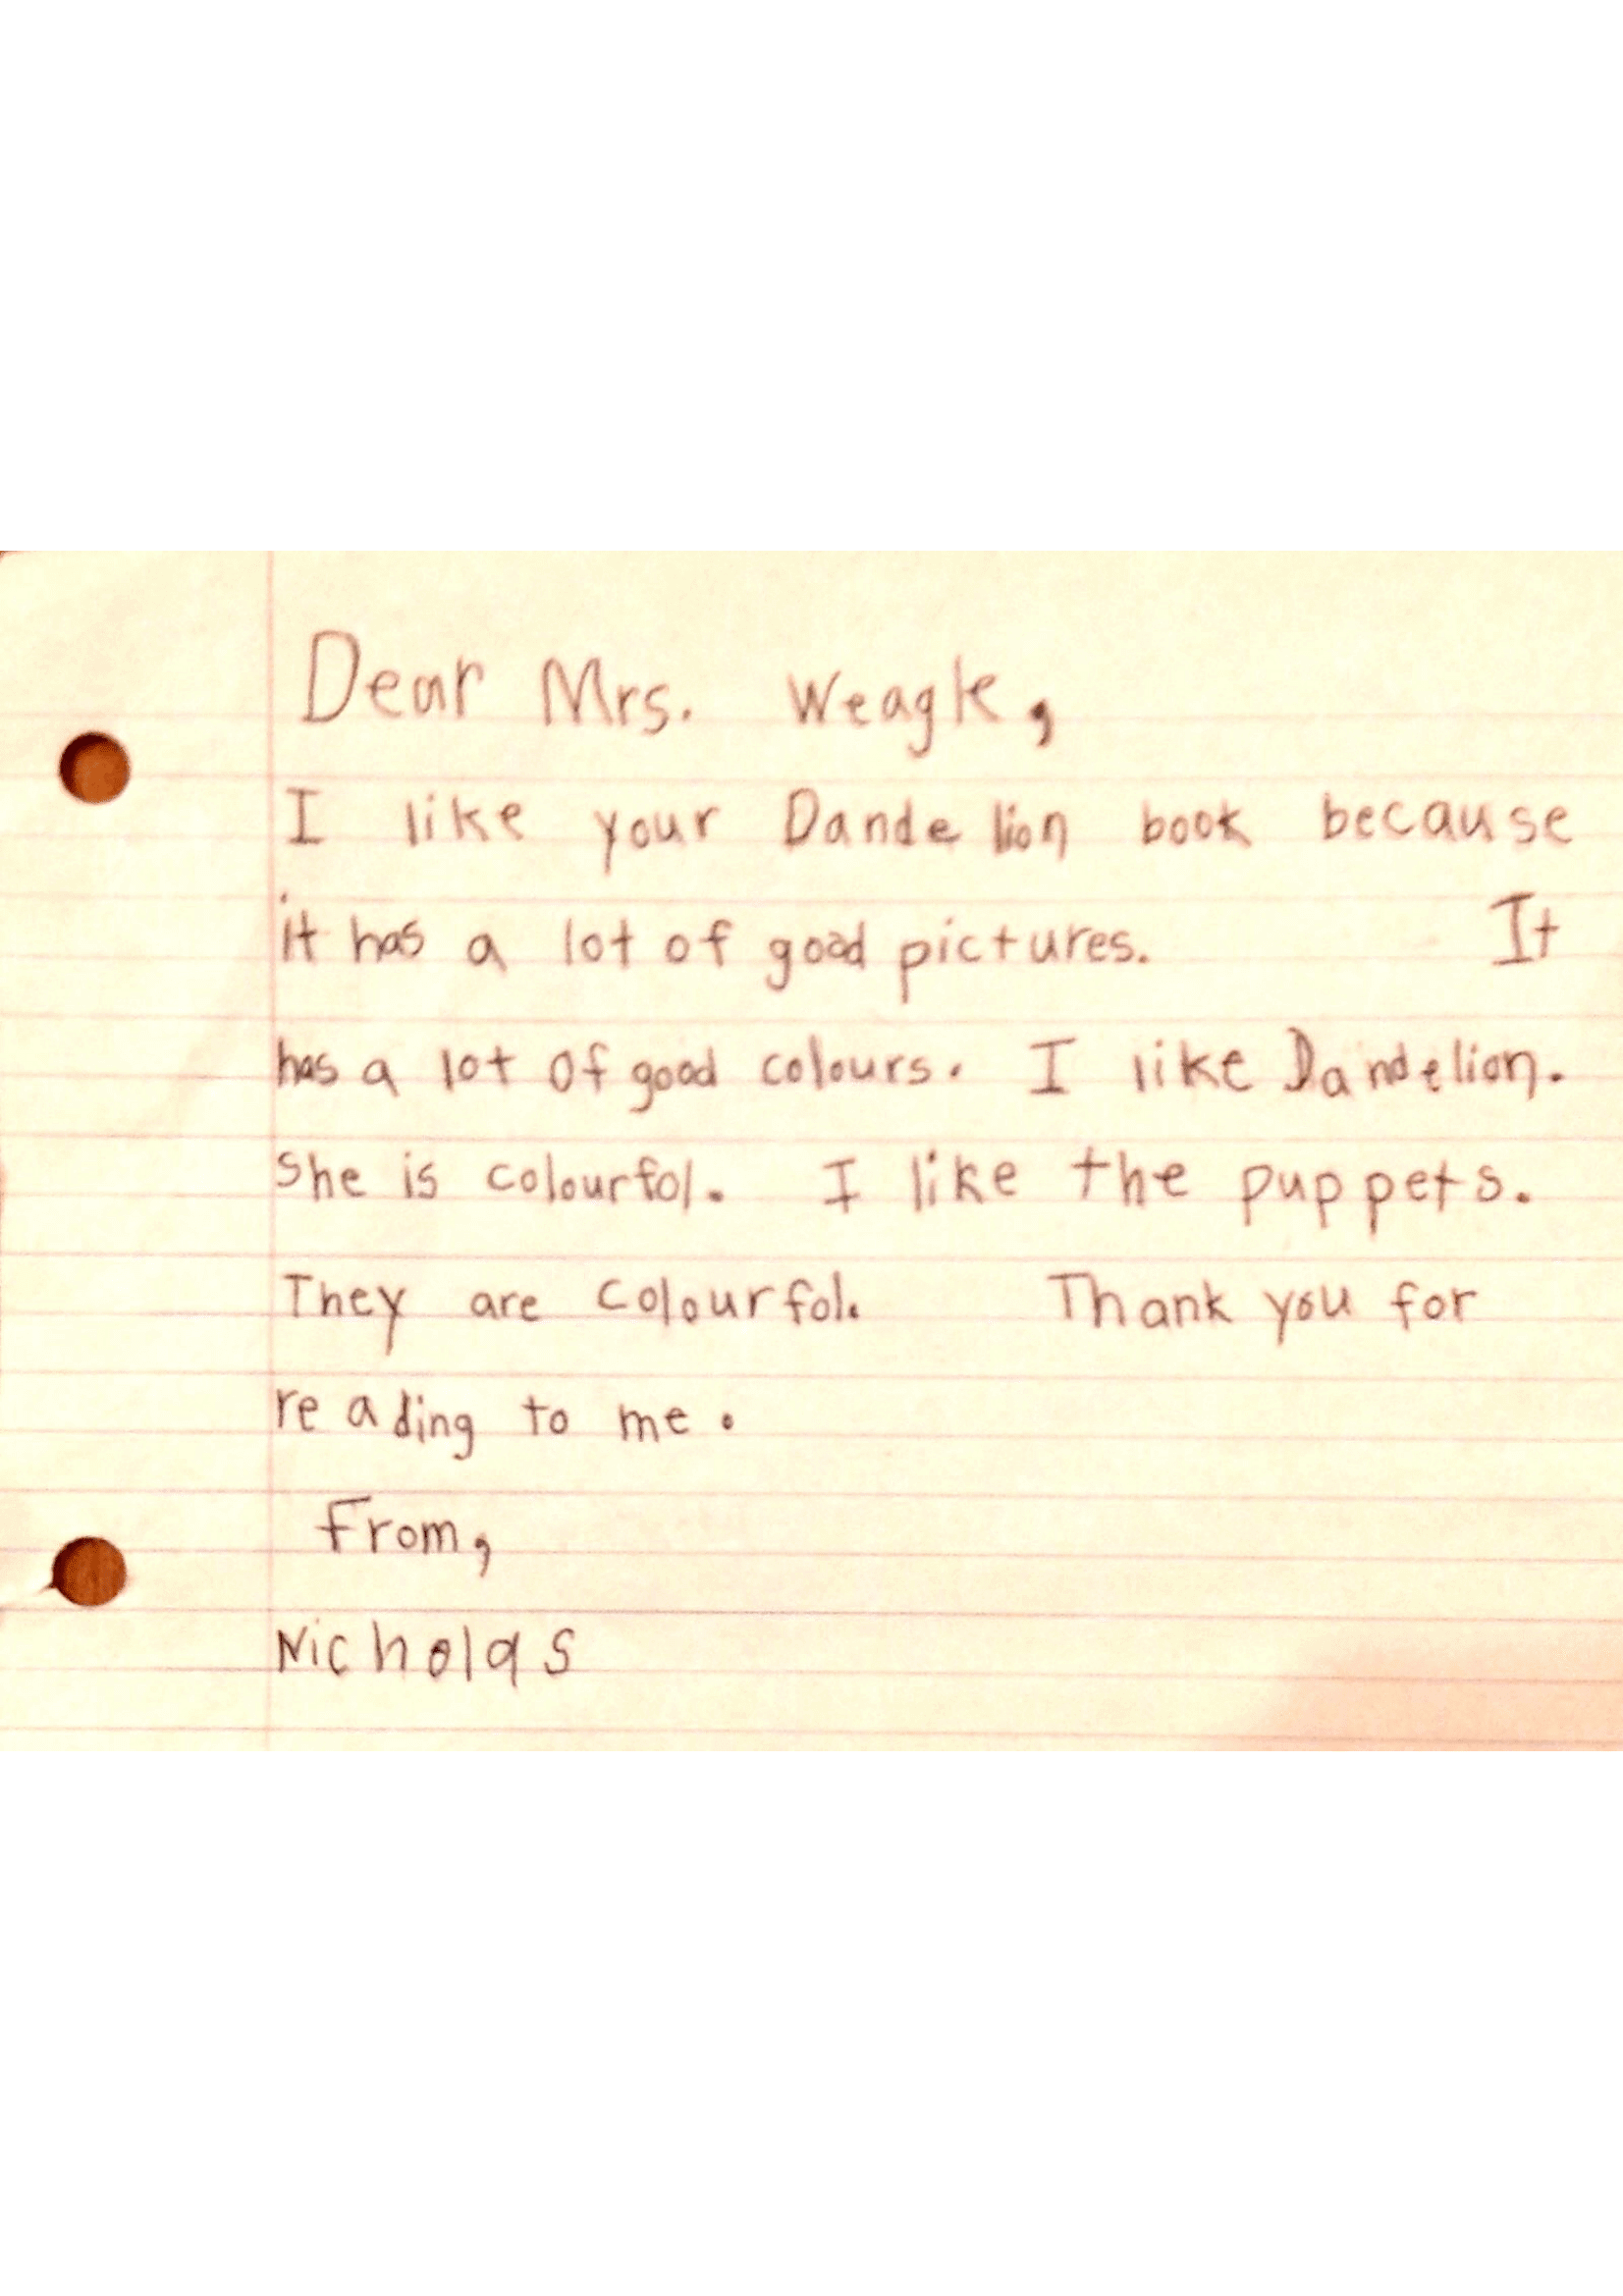 Dear Mrs. Weagle,
I like your Dandelion book because
it has a lot of good pictures. It
has a lot of good colours. I like Dandelion.
She is colourfol. I like the puppets.
They are colourfol. Thank you for
reading to me.
From,
Nicholas